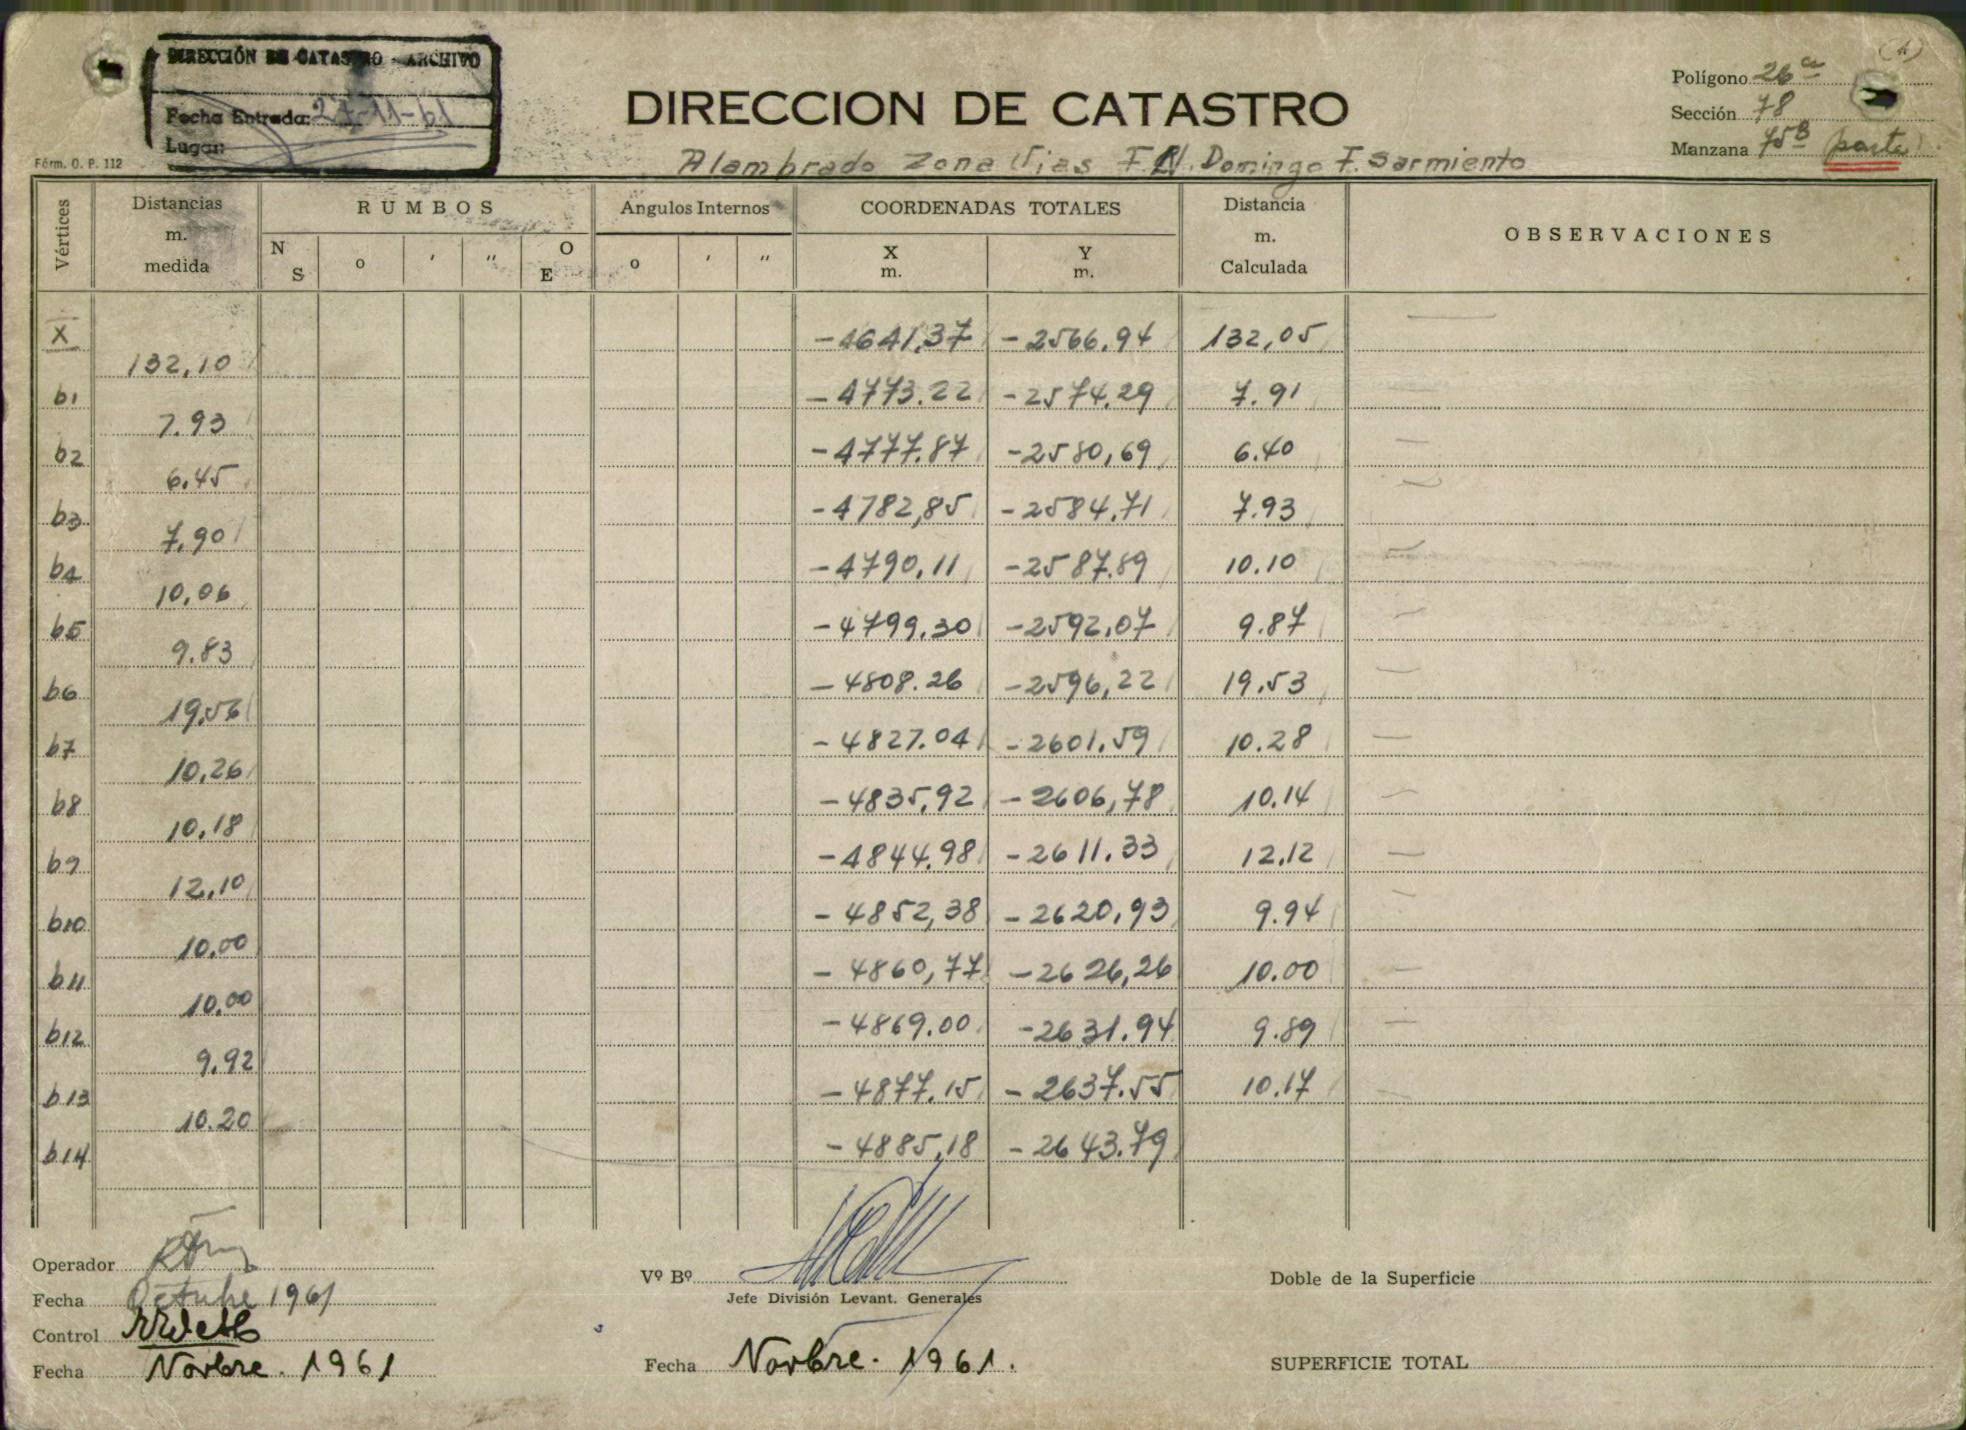 DIRECCIÓN DE CATASTRO - ARCHIVO
Fecha Entrada: 27-11-61
Lugar:
Fórm. O. P. 112
DIRECCION DE CATASTRO
Alambrado Zona Vias F.N. Domingo F. Sarmiento
Polígono 26
Sección 78
Manzana 75B (parte)
Vértices
Distancias m. medida
RUMBOS
N S ° ' " O E
Angulos Internos
° ' "
COORDENADAS TOTALES
X m. Y m.
Distancia m. Calculada
OBSERVACIONES
X -4641,37 -2566.94 132,05
132,10
b1 -4773.22 -2574.29 7.91
7.93
b2 -4777.87 -2580,69 6.40
6.45
b3 -4782,85 -2584.71 7.93
7,90
b4 -4790,11 -2587.89 10.10
10,06
b5 -4799.30 -2592,07 9.87
9.83
b6 -4808.26 -2596,22 19.53
19,56
b7 -4827.04 -2601.59 10.28
10,26
b8 -4835,92 -2606,78 10.14
10,18
b9 -4844.98 -2611.33 12,12
12,10
b10 -4852,38 -2620,93 9.94
10.00
b11 -4860,77 -2626,26 10.00
10.00
b12 -4869.00 -2631.94 9.89
9.92
b13 -4877.15 -2637.55 10.17
10.20
b14 -4885,18 -2643.79
Operador
Fecha Octubre 1961
Control
Fecha Novbre. 1961
Vº Bº
Jefe División Levant. Generales
Fecha Novbre. 1961.
Doble de la Superficie
SUPERFICIE TOTAL